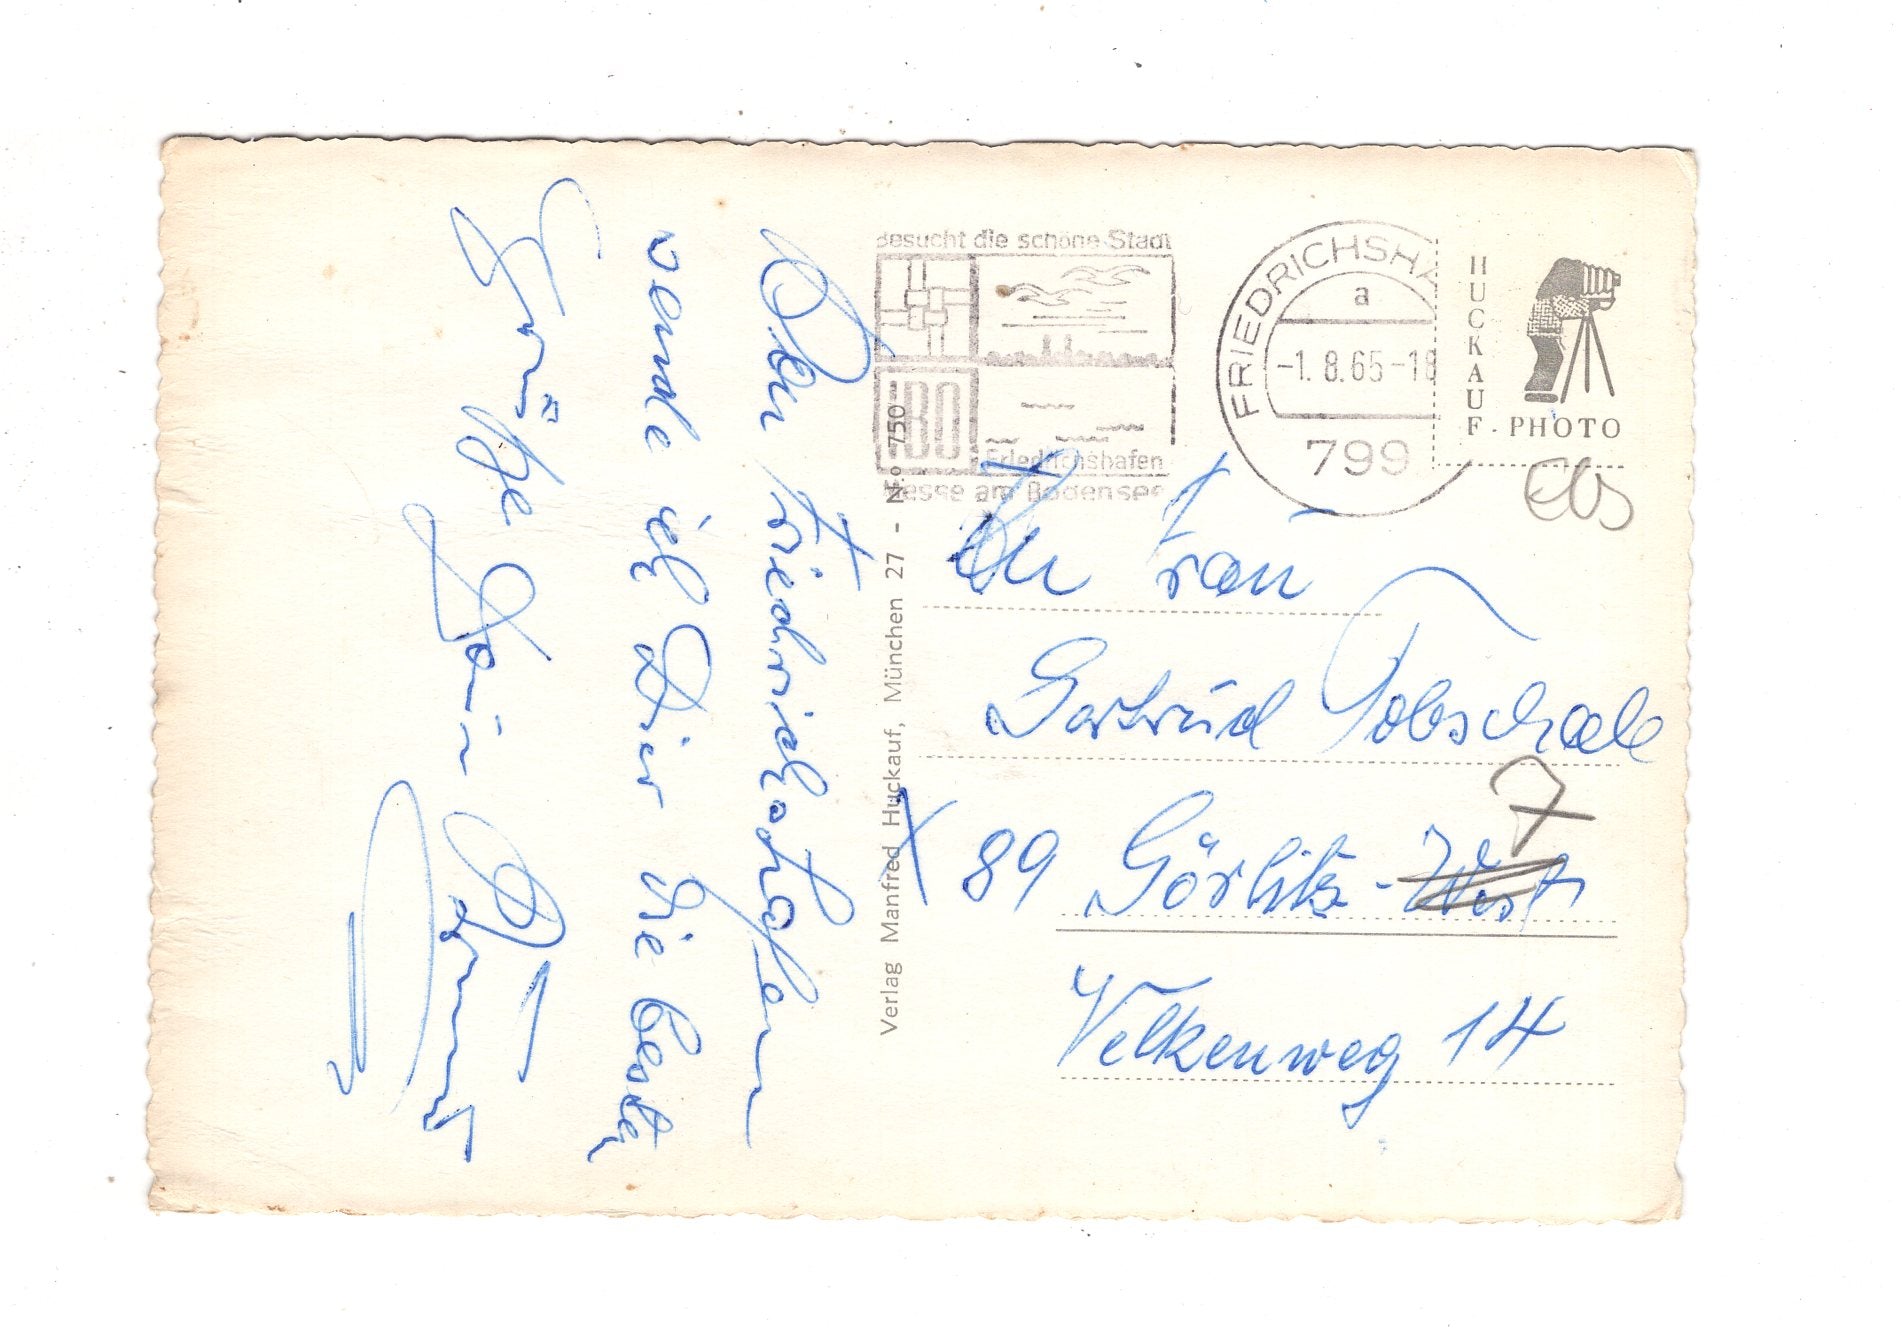 Aus Friedrichshafen
sende ich Dir die besten
Grüße Dein
Besucht die schöne Stadt
IBO
Friedrichshafen
Messe am Bodensee
FRIEDRICHSHA
a
-1.8.65-18
799
HUCKAUF-PHOTO
Verlag Manfred Huckauf, München 27 - N.o 750
An Frau
Gertrud Tobschale
X 89 Görlitz-West
Nelkenweg 14